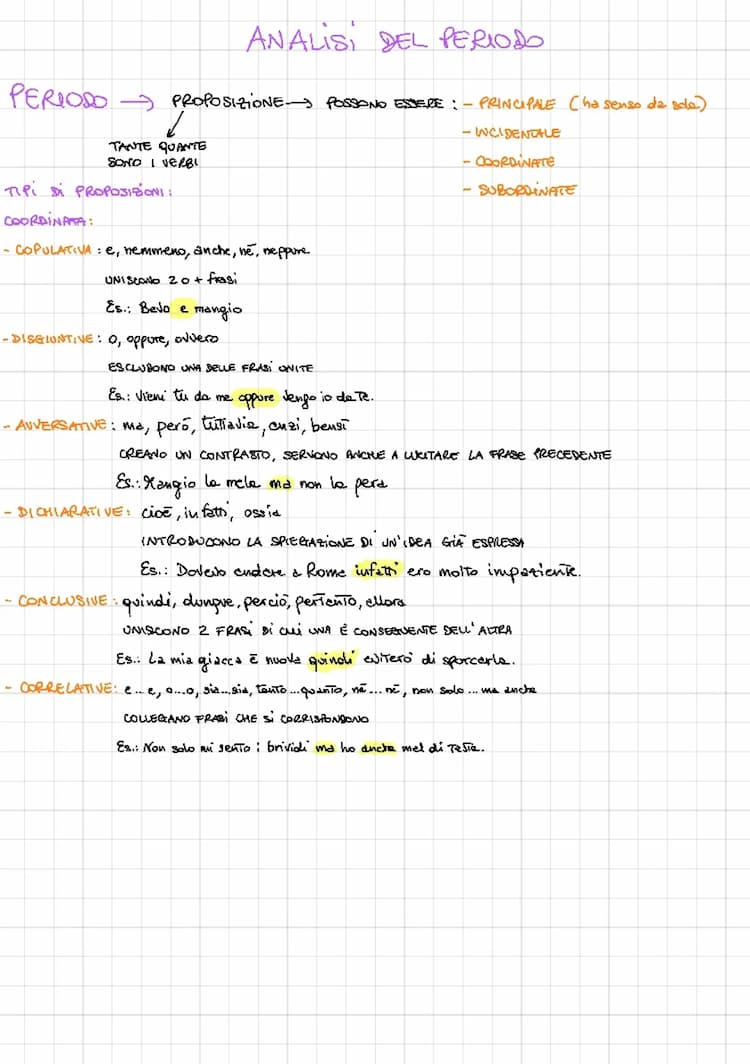 ANALISI DEL PERIODO
PERIODO → PROPOSIZIONE → POSSONO ESSERE : - PRINCIPALE (ha senso da sola)
- INCIDENTALE
TANTE QUANTE
SONO I VERBI
- COORDINATE
- SUBORDINATE
TIPI DI PROPOSIZIONI:
COORDINATA:
- COPULATIVA : e, nemmeno, anche, né, neppure
UNISCONO 2 O + frasi
Es.: Bevo e mangio
- DISGIUNTIVE : o, oppure, ovvero
ESCLUDONO UNA DELLE FRASI UNITE
Es.: Vieni tu da me oppure vengo io da te.
- AVVERSATIVE : ma, però, tuttavia, anzi, bensì
CREANO UN CONTRASTO, SERVONO ANCHE A LIMITARE LA FRASE PRECEDENTE
Es.: Mangio la mela ma non la pera
- DICHIARATIVE: cioè, infatti, ossia
INTRODUCONO LA SPIEGAZIONE DI UN'IDEA GIÀ ESPRESSA
Es.: Dovevo andare a Roma infatti ero molto impaziente.
- CONCLUSIVE : quindi, dunque, perciò, pertanto, allora
UNISCONO 2 FRASI DI CUI UNA È CONSEGUENTE DELL'ALTRA
Es.: La mia giacca è nuova quindi eviterò di sporcarla.
- CORRELATIVE: e...e, o...o, sia...sia, tanto...quanto, né...né, non solo...ma anche
COLLEGANO FRASI CHE SI CORRISPONDONO
Es.: Non solo mi sento i brividi ma ho anche mal di testa.